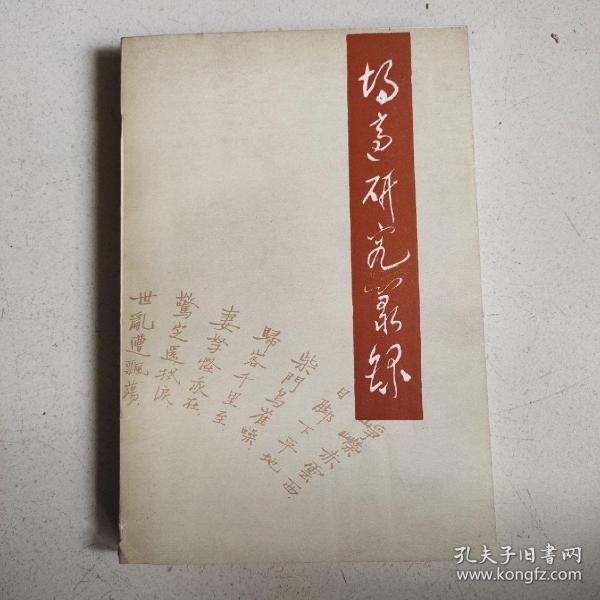 胡適研究叢錄
崢嶸赤雲西
日脚下平地
柴門鳥雀噪
歸客千里至
妻孥怪我在
驚定還拭淚
世亂遭飄蕩
孔夫子旧書网
www.kongfz.com